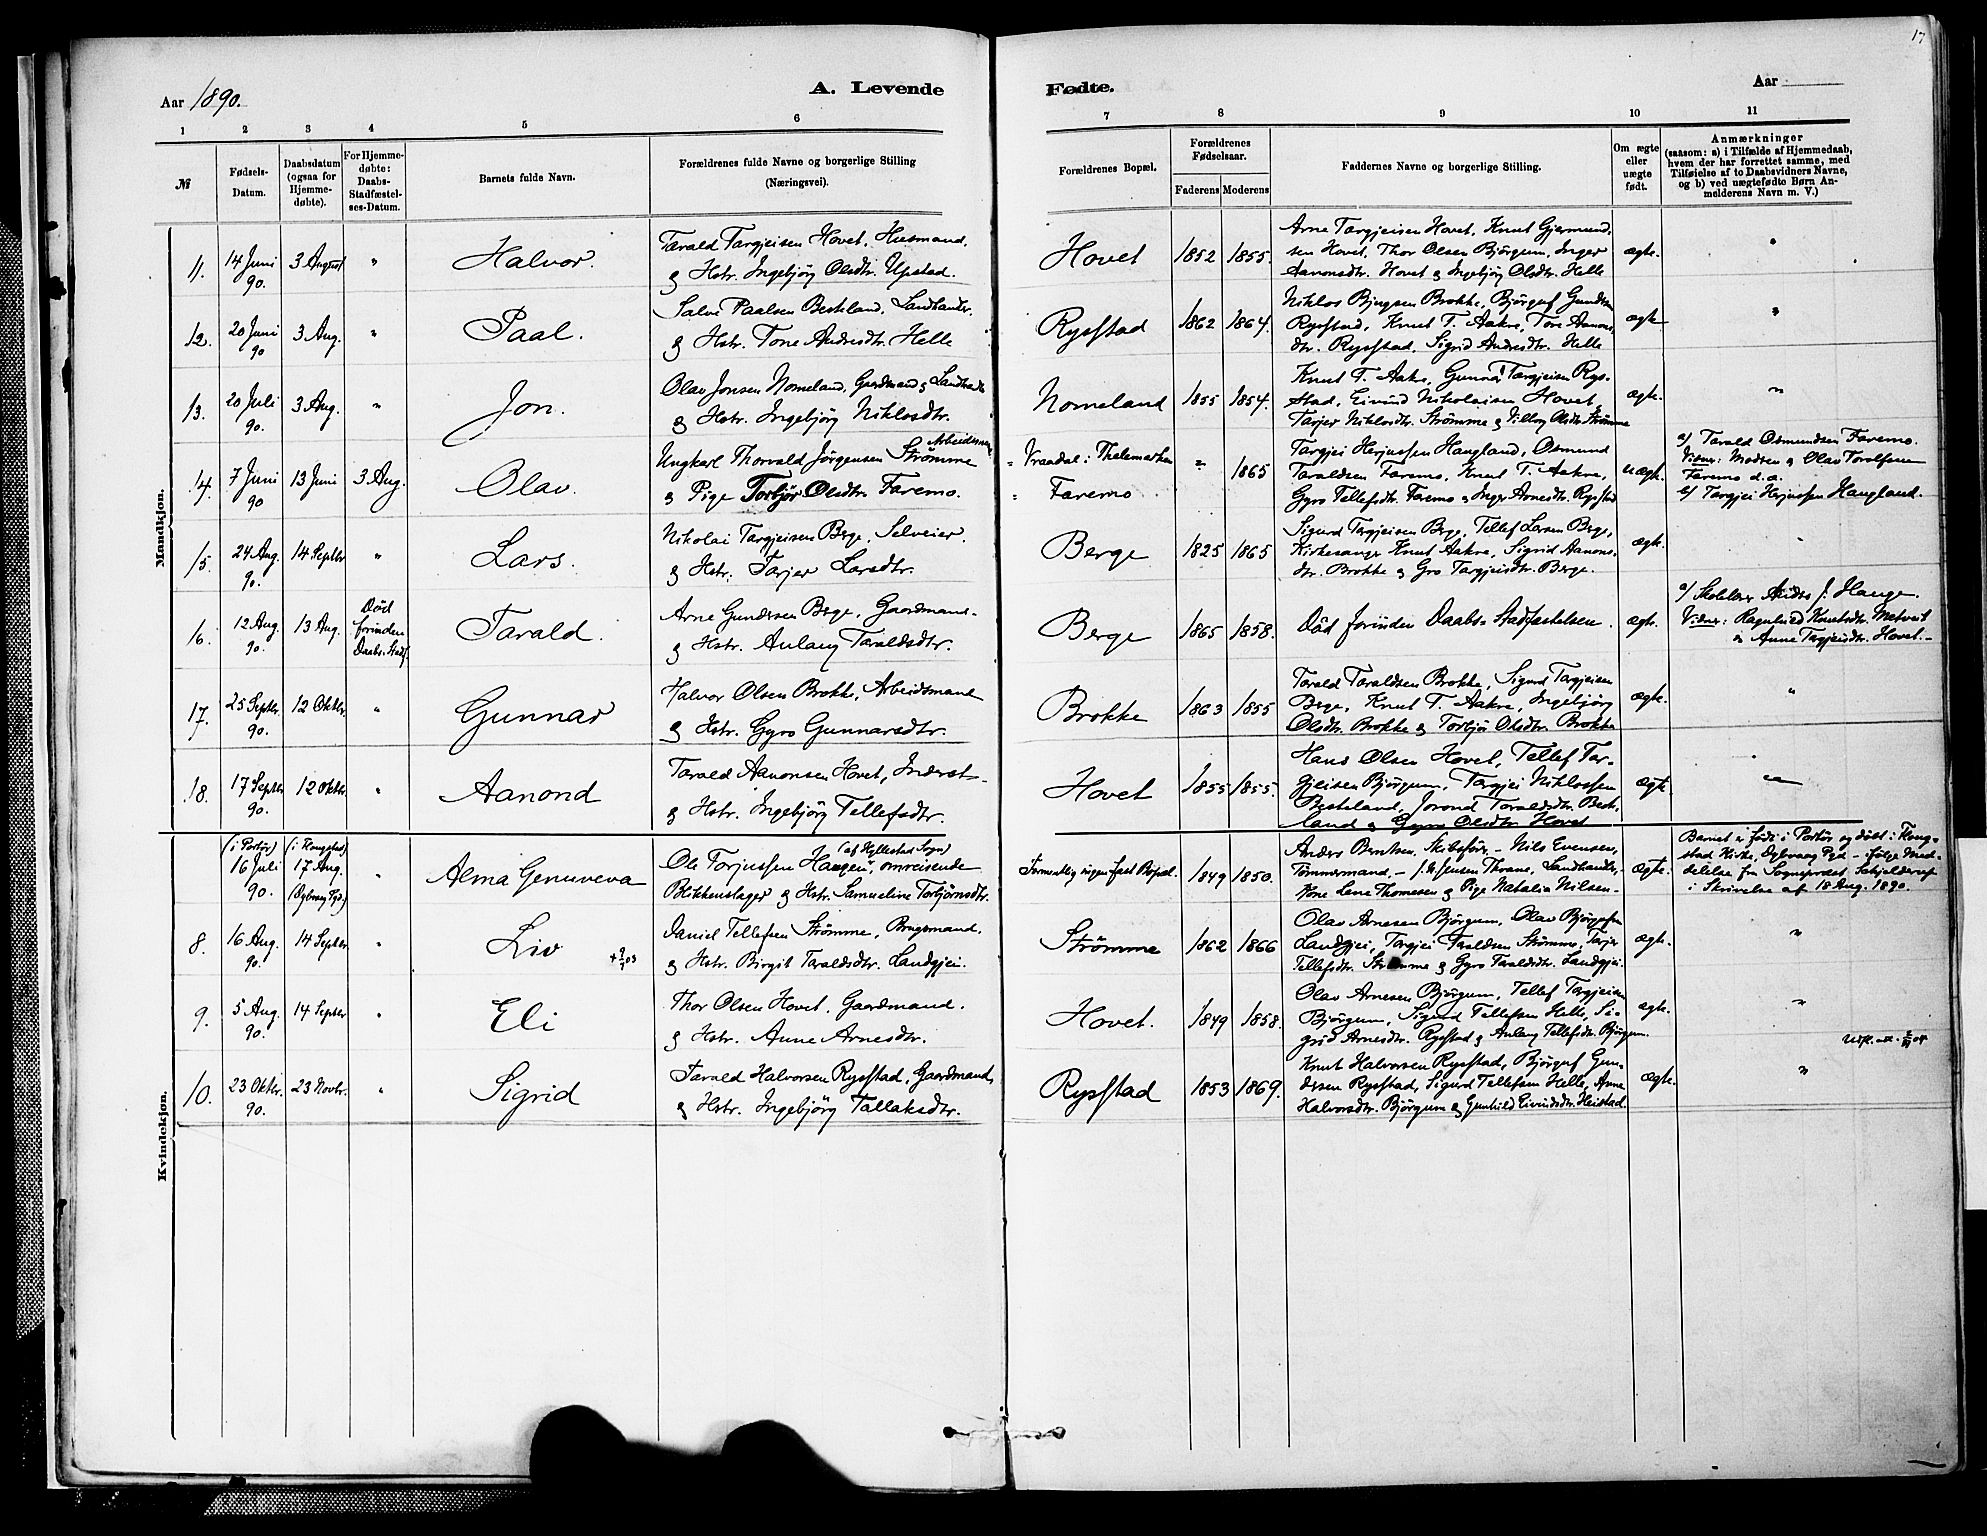 17
Aar 1890.
A. Levende
Fødte.
Aar
1 2 3 4 5 6 7 8 9 10 11
№
Fødsels-
Datum.
Daabsdatum
(ogsaa for
Hjemme-
døbte).
For Hjemme-
døbte:
Daabs-
Stadfæstel-
ses-Datum.
Barnets fulde Navn.
Forældrenes fulde Navne og borgerlige Stilling
(Næringsvei).
Forældrenes Bopæl.
Forældrenes
Fødselsaar.
Faderens Moderens
Faddernes Navne og borgerlige Stilling.
Om ægte
eller
uægte
født.
Anmærkninger
(saasom: a) i Tilfælde af Hjemmedaab,
hvem der har forrettet samme, med
Tilføielse af to Daabsvidners Navne,
og b) ved uægtefødte Børn An-
melderens Navn m. V.)
Mandkjøn.
11. 14 Juni 90. 3 August " Halvor.
Tarald Targjeisen Hovet, Husmand,
& Hstr. Ingebjörg Olsdtr. Upstad.
Hovet 1852 1855.
Arne Targjeisen Hovet, Knut Gjermund-
sen Hovet, Thor Olsen Björgum, Inger
Aanonsdtr. Hovet & Ingebjörg Olsdtr. Helle
ægte. "
12. 20 Juni 90 3 Aug. " Paal.
Salve Paalsen Besteland, Landhandler,
& Hstr. Tone Andresdtr. Helle
Rysstad 1862 1864.
Niklos Bjugsen Brokke, Björguf Gunders
Rysstad, Knut T. Aakre, Tore Aanons-
dtr. Rysstad, Sigrid Andresdtr. Helle
ægte "
13. 20 Juli 90. 3 Aug. " Jon.
Olav Jonsen Nomeland, Gaardmand & Landhandl
& Hstr. Ingebjörg Niklosdtr.
Nomeland 1855 1854.
Knut T. Aakre, Gunnar Targjeisen Rys-
stad, Eivind Nikolaisen Hovet,
Tarjer Niklosdtr. Strömme & Vilborg Olsdtr. Strömme
ægte. "
14. 7 Juni 90 13 Juni 3 Aug. Olav.
Arbeidsmand
Ungkarl Thorvald Jörgensen Strömme
& Pige Torbjör Olsdtr. Faremo.
Vraadal i Thelemarken
" Faremo
" 1865
Targjei Herjussen Haugland, Osmund
Taraldsen Faremo, Knut T. Aakre,
Gyro Tellefsdtr. Faremo & Inger Arnesdtr. Rysstad
uægte.
a/ Tarald Osmundsen Faremo.
Vidner: Modren & Olav Torolfsen
Faremo d.a.
b/ Targjei Herjussen Haugland.
15. 24 Aug. 90. 14 Septbr " Lars.
Nikolai Targjeisen Berge, Selveier.
& Hstr. Tarjer Larsdtr.
Berge 1825 1865
Sigurd Targjeisen Berge, Tellef Larsen Berge,
Kirkesanger Knut Aakre, Sigrid Aanons-
dtr. Brokke & Gro Targjeisdtr. Berge.
ægte. "
16. 12 Aug. 90. 13 Aug.
Död
forinden
Daabs. Stadf.
Tarald.
Arne Gundersen Berge, Gaardmand-
& Hstr. Aulaug Taraldsdtr.
Berge 1865 1858.
Död forinden Daabs-Stadfæstelsen.
ægte.
a/ Skolelærer Andres J. Hauge.
Vidner: Ragnhild Knutsdtr. Metveit
& Anne Targjeisdtr. Hovet.-
17. 25 Septbr. 90. 12 Oktbr. " Gunnar
Halvor Olsen Brokke, Arbeidsmand
& Hstr. Gyro Gunnarsdtr.
Brokke 1863 1855
Torald Taraldsen Brokke, Sigurd Targjeisen
Berge, Knut T. Aakre, Ingebjörg
Olsdtr. Brokke & Torbjör Olsdtr. Brokke
ægte. "
18. 17 Septbr 90. 12 Oktbr. " Aanond
Tarald Aanonsen Hovet, Inderst-
& Hstr. Ingebjörg Tellefsdtr.
Hovet 1855 1855.
Hans Olsen Hovet, Tellef Tar-
gjeisen Björgum, Targjei Niklossen
Besteland, Jorond Toraldsdtr. Beste-
land & Gyro Olsdtr. Hovet
ægte. "
Kvindekjøn.
(i Portör) 16 Juli 90.
17 Aug. (Dybvaag Pgd.)
" Alma Genuveva
(af Hyllestad Sogn)
Ole Torjussen Haugen, omreisende
Blikkenslager & Hstr. Samueline Torbjörnsdtr.
Formentlig ingen fast Bopæl. 1849 1850.
Anders Berntsen, Skibsförer - Nils Evensen,
Tömmermand, - J. Jensen Throne, Landhandler,
Kone Lene Thomesen & Pige Natalia Nilsen-
ægte.
Barnet er födt i Portör og döbt i
stad Kirke, Dybvaag Pgd - ifölge Med-
delelse fra Sognepræst
i Skrivelse af 18 Aug. 1890.
8. 16 Aug. 90. 14 Septbr " Liv + 9/7 03
Daniel Tellefsen Strömme, Brugsmand.
& Hstr. Birgit Taraldsdtr. Landgjei.
Strömme 1862 1866
Olav Arnesen Björgum, Olav Björgufsen
Landgjei, Targjei Taraldsen Strömme, Tarjer
Tellefsdtr. Strömme & Gyro Taraldsdtr. Landgjei.
ægte. "
9. 5 Aug. 90. 14 Septbr " Eli
Thor Olsen Hovet, Gaardmand.
& Hstr. Anne Arnesdtr.
Hovet. 1849 1858.
Olav Arnesen Björgum, Tellef Targjeisen
Björgum, Sigurd Tellefsen Helle, Si-
grid Arnesdtr. Rysstad & Aulaug Tellefsdtr. Björgum.
ægte. "
10. 23 Oktbr. 90. 23 Novbr. " Sigrid
Tarald Halvorsen Rysstad, Gaardmand,
& Hstr. Ingebjörg Tallaksdtr.
Rysstad 1853 1869.
Knut Halvorsen Rysstad, Björguf Gun-
dersen Rysstad, Sigurd Tellefsen Helle, Anne
Halvorsdtr. Björgum & Gunhild Eivindsdtr. Heistad.
ægte. "